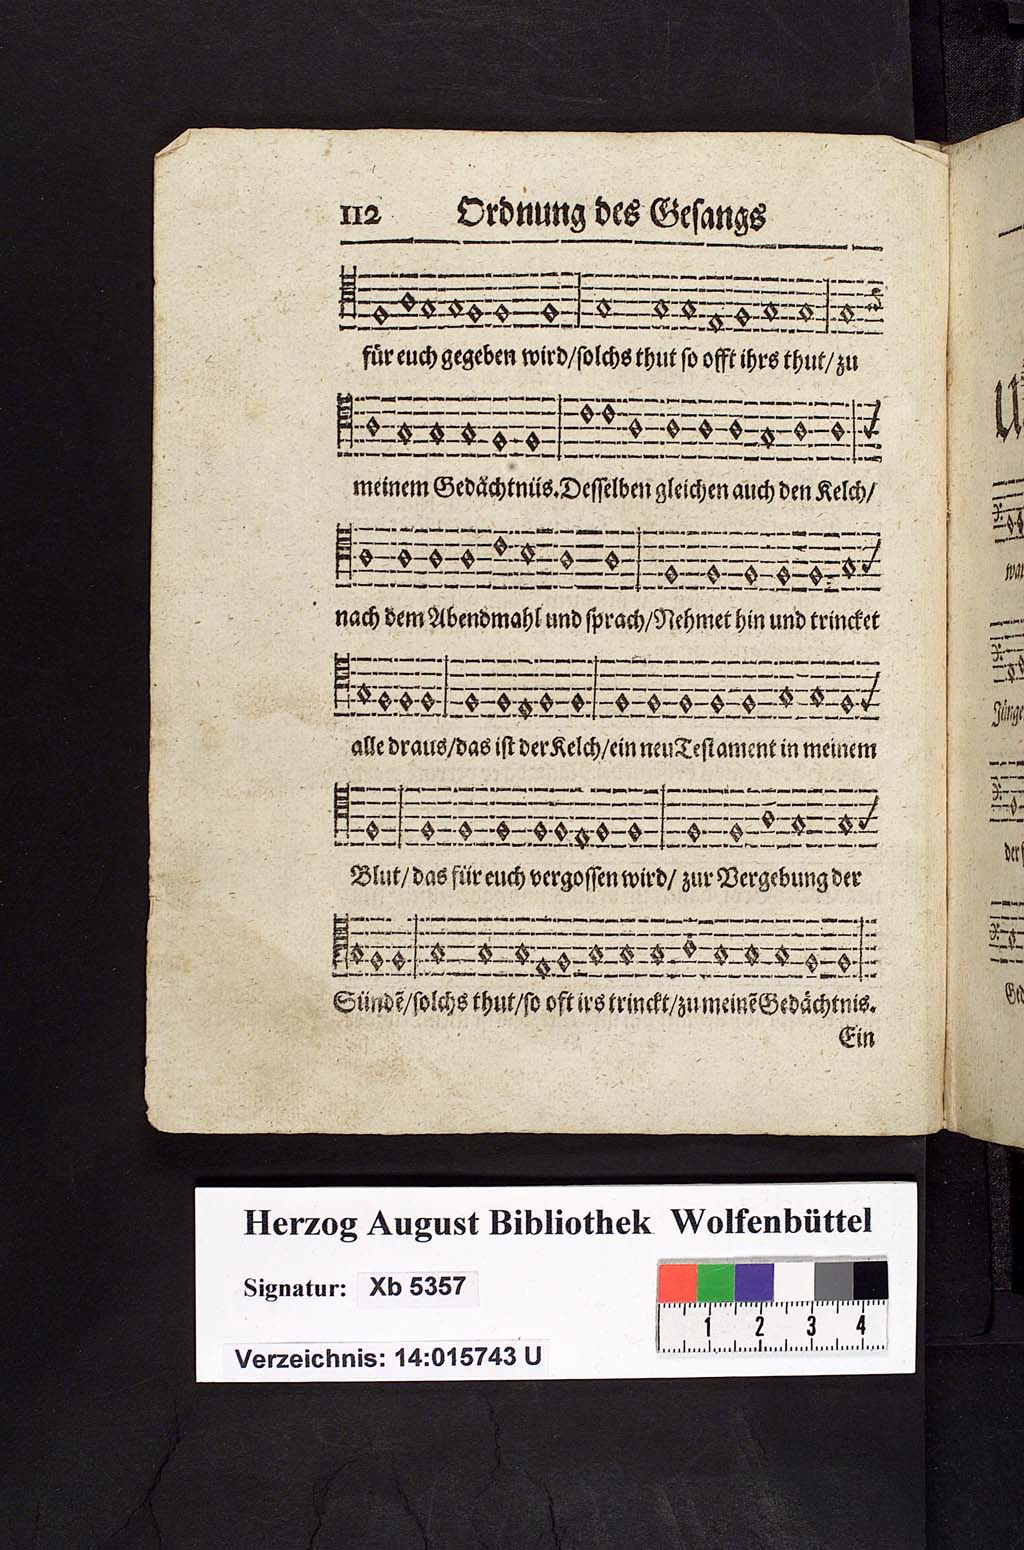 112 Ordnung des Gesangs
für euch gegeben wird/solchs thut so offt ihrs thut/ zu
meinem Gedächtnüs. Desselben gleichen auch den Kelch/
nach dem Abendmahl und sprach/Nehmet hin und trincket
alle draus/das ist der Kelch/ein neu Testament in meinem
Blut/ das für euch vergossen wird/ zur Vergebung der
Sündẽ/solchs thut/so oft irs trinckt/zu meinẽ Gedächtnis.
Ein
Herzog August Bibliothek Wolfenbüttel
Signatur: Xb 5357
Verzeichnis: 14:015743 U
1 2 3 4